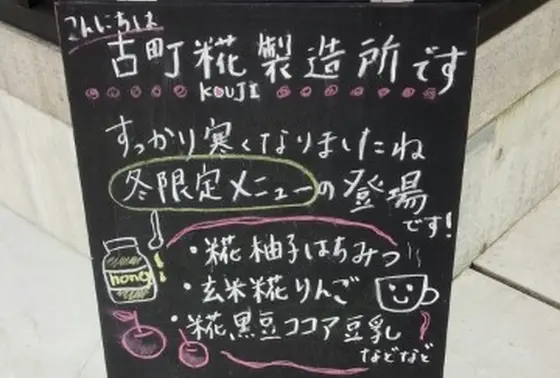 こんにちは
古町糀製造所です
KOUJI
すっかり寒くなりましたね
冬限定メニューの登場
です!
・糀柚子はちみつ
honey
・玄米糀りんご
・糀黒豆ココア豆乳
などなど